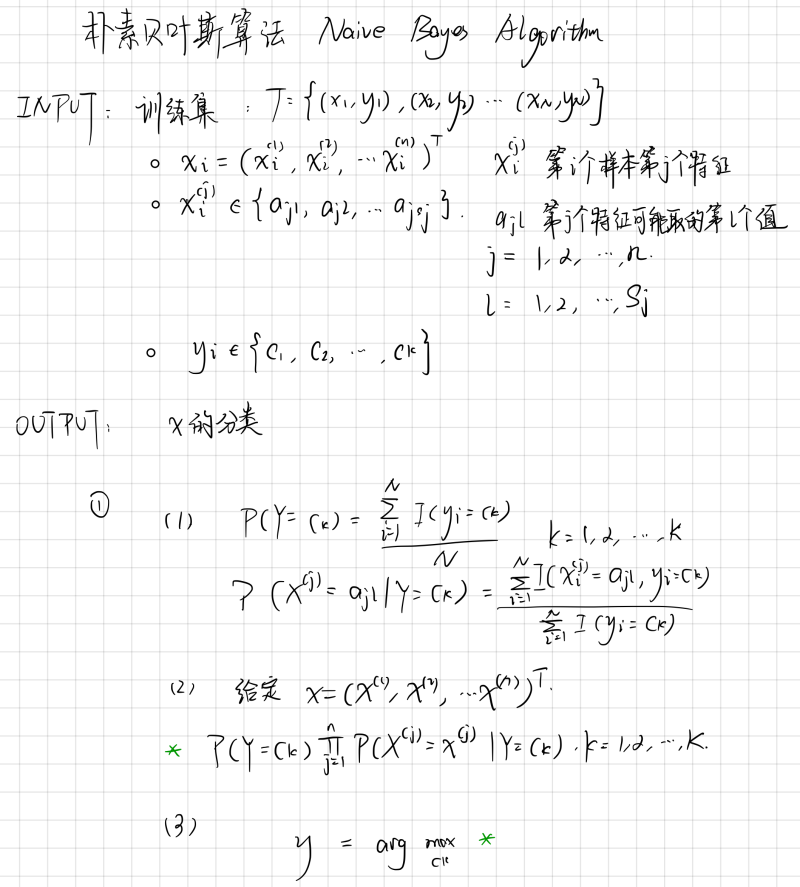 朴素贝叶斯算法 Naive Bayes Algorithm
INPUT: 训练集 : T = {(x₁, y₁), (x₂, y₂) ⋯ (x_N, y_N)}
∘ x_i = (x_i^(1), x_i^(2), ⋯ x_i^(n))^T x_i^(j) 第i个样本第j个特征
∘ x_i^(j) ∈ {a_j1, a_j2, ⋯ a_jSj}. a_jl 第j个特征可能取的第l个值
j = 1, 2, ⋯, n.
l = 1, 2, ⋯, S_j
∘ y_i ∈ {C₁, C₂, ⋯, C_k}
OUTPUT: x的分类
① (1) P(Y = C_k) = ∑_{i=1}^N I(y_i = C_k) / N k = 1, 2, ⋯, K
P(X^(j) = a_jl | Y = C_k) = ∑_{i=1}^N I(x_i^(j) = a_jl, y_i = C_k) / ∑_{i=1}^N I(y_i = C_k)
(2) 给定 x = (x^(1), x^(2), ⋯ x^(n))^T.
* P(Y = C_k) ∏_{j=1}^n P(X^(j) = x^(j) | Y = C_k). k = 1, 2, ⋯, K.
(3) y = arg max_{C_k} *